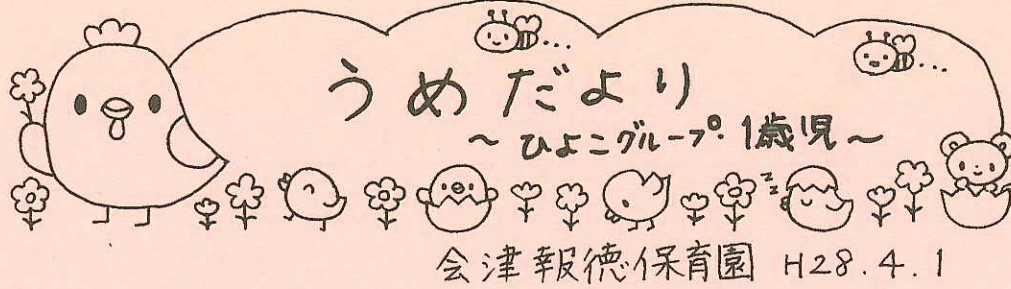 うめだより
～ひよこグループ・1歳児～
z z z
会津報徳保育園 H28.4.1